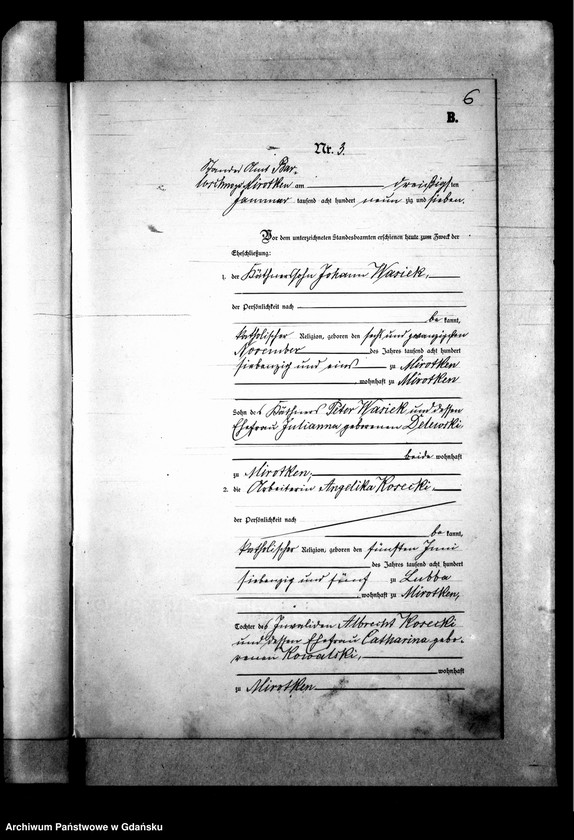 6
B.
Nr. 3.
Standes Amt Bar-
loschno Mirotken am dreißigsten
Januar tausend acht hundert neun zig und sieben.
Vor dem unterzeichneten Standesbeamten erschienen heute zum Zweck der
Eheschließung:
1. der Käthnerssohn Johann Wasiek,
der Persönlichkeit nach
be kannt,
katholischer Religion, geboren den sechs und zwanzigsten
November des Jahres tausend acht hundert
siebenzig und eins zu Mirotken
wohnhaft zu Mirotken
Sohn des Käthners Peter Wasiek und dessen
Ehefrau Julianna geborenen Delewski
beide wohnhaft
zu Mirotken,
2. die Arbeiterin Angelika Kosecki,
der Persönlichkeit nach
be kannt,
katholischer Religion, geboren den fünften Juni
des Jahres tausend acht hundert
siebenzig und fünf zu Lubba
wohnhaft zu Mirotken,
Tochter des Invaliden Albrecht Kosecki
und dessen Ehefrau Catharina gebo-
renen Kowalski,
wohnhaft
zu Mirotken
Archiwum Państwowe w Gdańsku